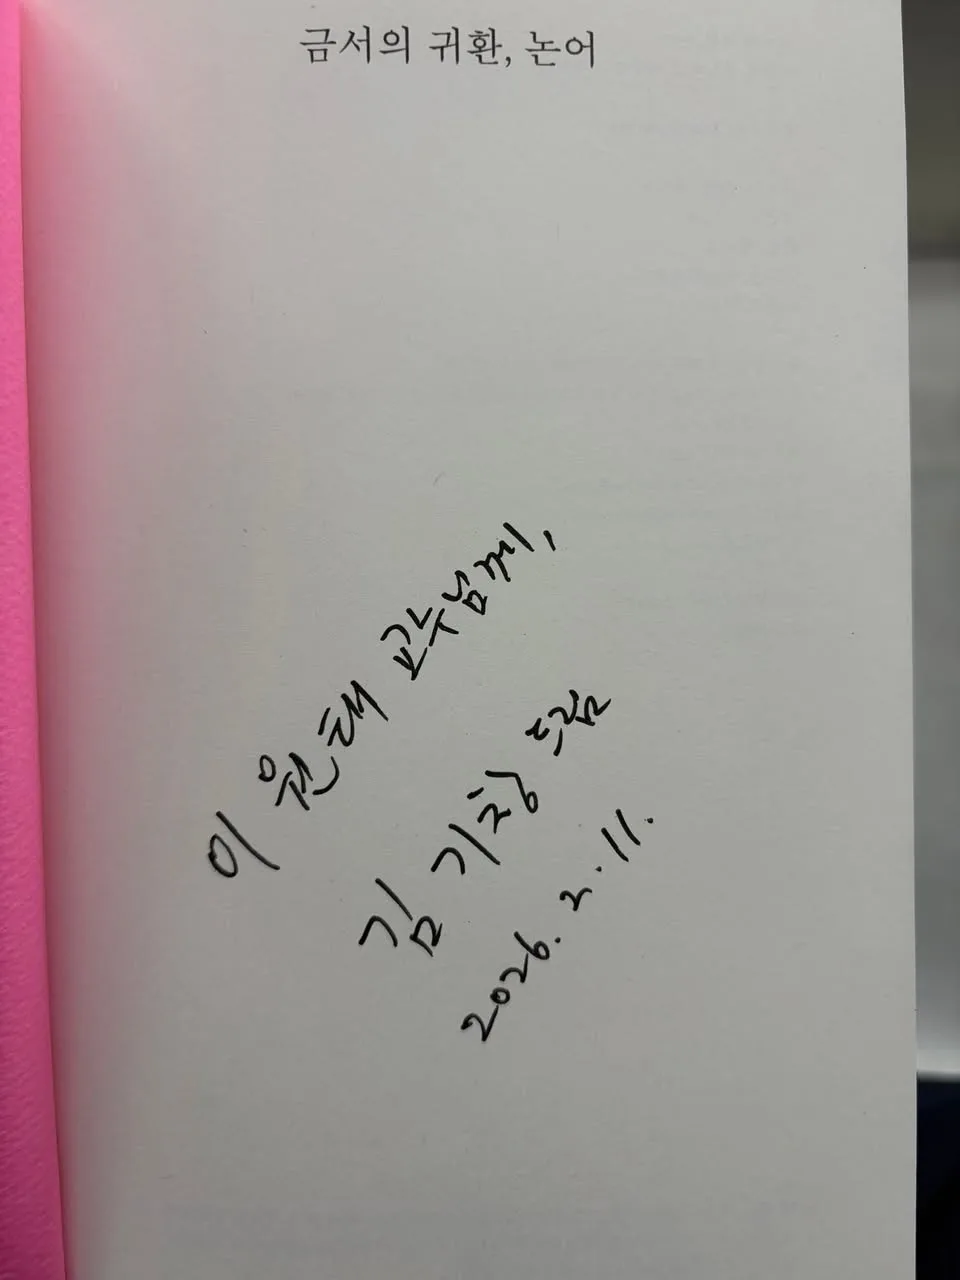 금서의 귀환, 논어
이 원태 교수님께,
김 기창 드림
2026. 2. 11.